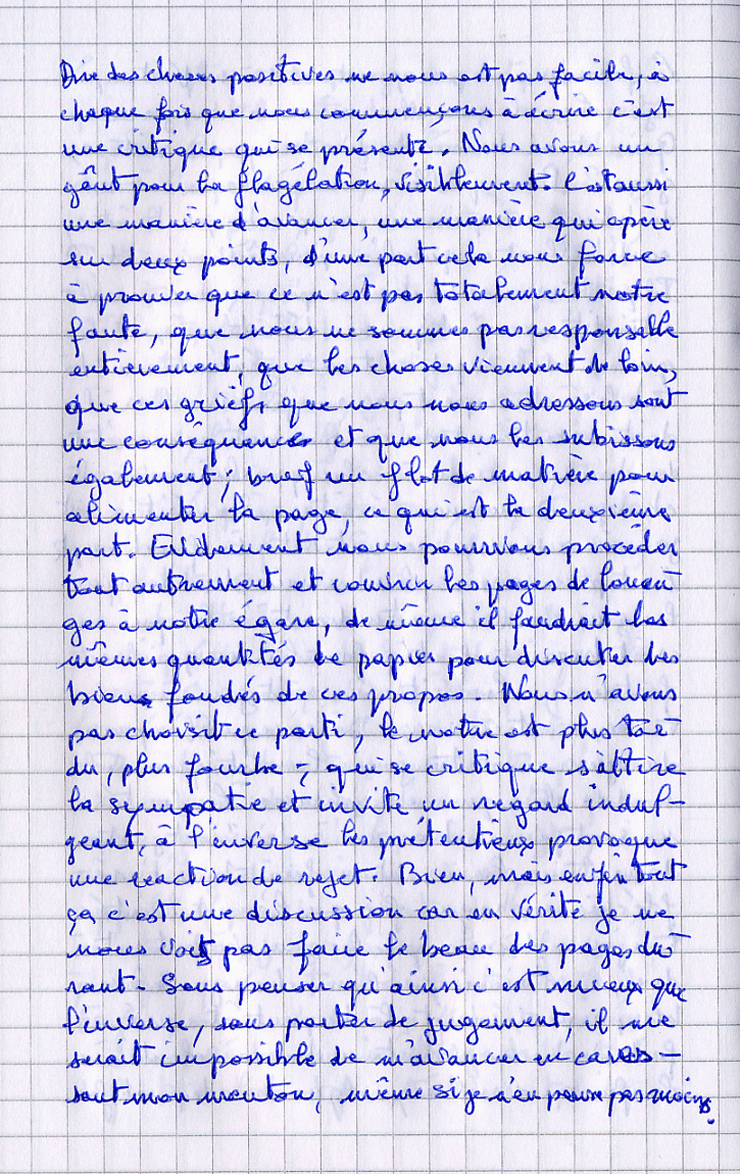 Dire des choses positives ne nous est pas facile, à
chaque fois que nous commençons à écrire c'est
une critique qui se présente. Nous avons un
goût pour la flagélation, visiblement. C'est aussi
une manière d'avancer, une manière qui opère
sur deux points, d'une part cela nous force
à prouver que ce n'est pas totalement notre
faute, que nous ne sommes pas responsable
entièrement, que les choses viennent de loin,
que ces griefs que nous nous adressons sont
une conséquence et que nous les subissons
également; bref un flot de matière pour
alimenter la page, ce qui est la deuxième
part. Evidement nous pourrions procéder
tout autrement et couvrir les pages de louan
ges à notre égard, de même il faudrait les
mêmes quantités de papier pour discuter des
biens fondés de ces propos. Nous n'avons
pas choisit ce parti, le notre est plus tor
du, plus fourbe; qui se critique s'attire
la sympatie et invite un regard indul-
geant, à l'inverse les prétentieux provoque
une reaction de rejet. Bien, mais enfin tout
ça c'est une discussion car en vérité je ne
nous vois pas faire le beau des pages du
rant. Sans penser qu'ainsi c'est mieux que
l'inverse, sans porter de jugement, il me
serait impossible de m'avancer en cares-
sant mon menton, même si je n'en pense pas moins.